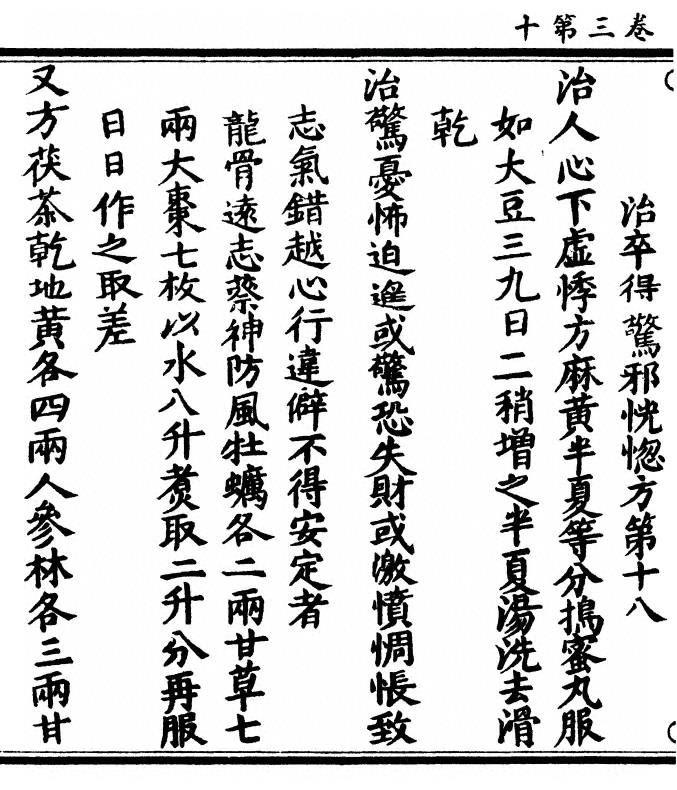 卷三第十
治卒得驚邪恍惚方第十八
治人心下虛悸方麻黃半夏等分搗蜜丸服
如大豆三九日二稍增之半夏湯洗去滑
乾
治驚憂怖迫逐或驚恐失財或激憤惆悵致
志氣錯越心行違僻不得安定者
龍骨遠志蔡神防風牡蠣各二兩甘草七
兩大棗七枚以水八升煑取二升分再服
日日作之取差
又方茯茶乾地黃各四兩人參林各三兩甘